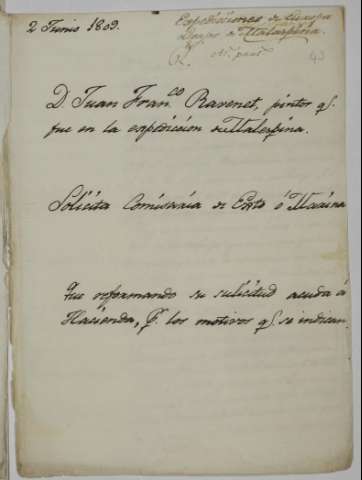 2 Junio 1809.
Expediciones de Europa
Viajes de Malaspina.
43
D. Juan Fran.co Ravenet, pintor q.
fue en la expedicion de Malespina.
Solicita Comisaria de Exto ó Marina
Que reformando su solicitud acuda á
Hacienda, p. los motivos q. se indican.